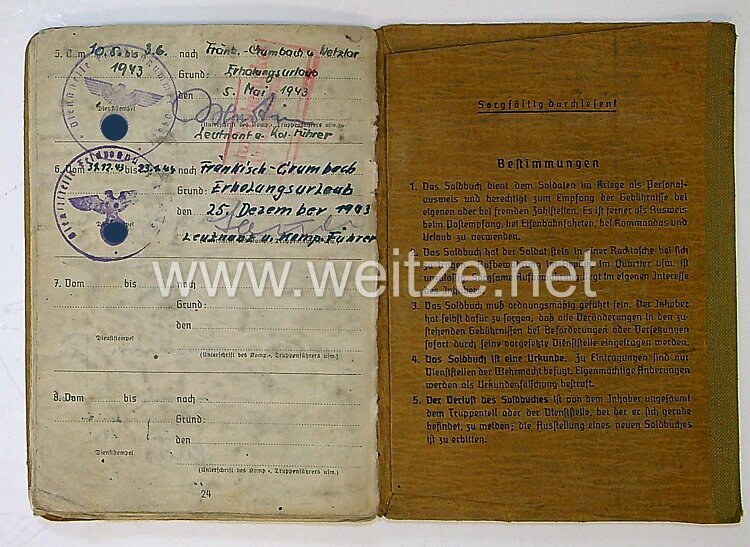 5. Vom 10.5. bis 3.6. nach Fränk.-Crumbach u. Wetzlar
1943 Grund: Erholungsurlaub
den 5. Mai 1943
Dienststempel
(Unterschrift des Komp.-, Truppenführers usw.)
Leutnant u. Kol. Führer
6. Vom 31.12.43 bis 23.1.44 nach Fränkisch-Crumbach
Grund: Erholungsurlaub
den 25. Dezember 1943
Dienststempel
Leutnant u. Komp. Führer
7. Vom bis nach
Grund:
den
Dienststempel
(Unterschrift des Komp.-, Truppenführers usw.)
8. Vom bis nach
Grund:
den
Dienststempel
(Unterschrift des Komp.-, Truppenführers usw.)
24
Sorgfältig durchlesen!
Bestimmungen
1. Das Soldbuch dient dem Soldaten im Kriege als Personal-
ausweis und berechtigt zum Empfang der Gebührnisse bei
eigenen oder bei fremden Zahlstellen. Es ist ferner als Ausweis
beim Postempfang, bei Eisenbahnfahrten, bei Kommandos und
Urlaub zu verwenden.
2. Das Soldbuch hat der Soldat stets in einer Rocktasche bei sich
zu tragen. Aufbewahrung im Quartier usw. ist
unzulässig. Sorgsame Aufbewahrung liegt im eigenen Interesse
des Inhabers.
3. Das Soldbuch muß ordnungsmäßig geführt sein. Der Inhaber
hat selbst dafür zu sorgen, daß alle Veränderungen in den zu-
stehenden Gebührnissen bei Beförderungen oder Versetzungen
sofort durch seine vorgesetzte Dienststelle eingetragen werden.
4. Das Soldbuch ist eine Urkunde. Zu Eintragungen sind nur
Dienststellen der Wehrmacht befugt. Eigenmächtige Änderungen
werden als Urkundenfälschung bestraft.
5. Der Verlust des Soldbuches ist von dem Inhaber ungesäumt
dem Truppenteil oder der Dienststelle, bei der er sich gerade
befindet, zu melden; die Ausstellung eines neuen Soldbuches
ist zu erbitten.
www.weitze.net